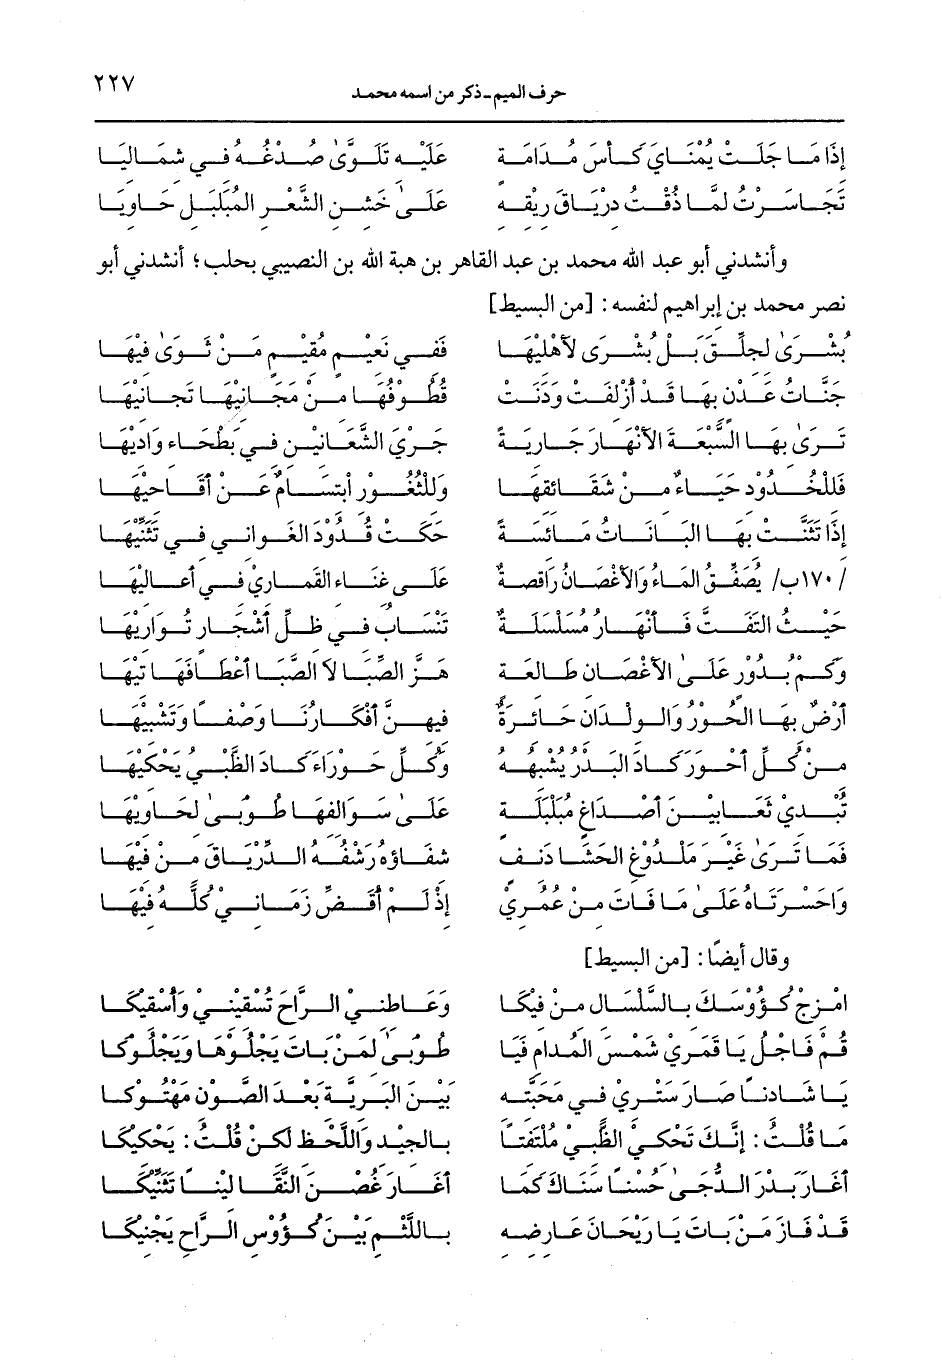 حرف الميم ـ ذكر من اسمه محمد ٢٢٧
إِذَا مَا جَلَتْ يُمْنَايَ كَأْسَ مُدَامَةٍ عَلَيْهِ تَلَوَّىٰ صُدْغُهُ فِي شِمَالِيَا
تَجَاسَرْتُ لَمَّا ذُقْتُ دِرْيَاقَ رِيْقِهِ عَلَىٰ خَشِنِ الشَّعْرِ المُبَلْبَلِ حَاوِيَا
وأنشدني أبو عبد الله محمد بن عبد القاهر بن هبة الله بن النصيبي بحلب؛ أنشدني أبو
نصر محمد بن إبراهيم لنفسه: [من البسيط]
بُشْرَىٰ لِجِلَّقَ بَلْ بُشْرَى لأَهْلِيْهَا فَفِي نَعِيْمٍ مُقِيْمٍ مَنْ ثَوَىٰ فِيْهَا
جَنَّاتُ عَدْنٍ بِهَا قَدْ أُزْلِفَتْ وَدَنَتْ قُطُوْفُهَا مِنْ مَجَانِيْهَا تَجَانِيْهَا
تَرَىٰ بِهَا السَّبْعَةَ الأَنْهَارَ جَارِيَةً جَرْيَ الثَّعَابِيْنِ فِي بَطْحَاءِ وَادِيْهَا
فَلِلْخُدُودِ حَيَاءٌ مِنْ شَقَائِقِهَا وَلِلثُّغُوْرِ ابْتِسَامٌ عَنْ أَقَاحِيْهَا
إِذَا تَثَنَّتْ بِهَا البَانَاتُ مَائِسَةً حَكَتْ قُدُوْدَ الغَوانِي فِي تَثَنِّيْهَا
/١٧٠ب/ يُصَفِّقُ المَاءُ وَالأَغْصَانُ رَاقِصَةٌ عَلَى غِنَاءِ القَمَارِيْ فِي أَعَالِيْهَا
حَيْثُ التَفَتَّ فَأَنْهَارٌ مُسَلْسَلَةٌ تَنْسَابُ فِي ظِلِّ أَشْجَارٍ تُوَارِيْهَا
وَكَمْ بُدُوْرٍ عَلَىٰ الأَغْصَانِ طَالِعَةٍ هَزَّ الصِّبَا لاَ الصَّبَا أَعْطَافَهَا تِيْهَا
أَرْضٌ بِهَا الحُوْرُ وَالوِلْدَانُ حَائِرَةٌ فِيهِنَّ أَفْكَارُنَا وَصْفاً وَتَشْبِيْهَا
مِنْ كُلِّ أَحْوَرَ كَادَ البَدْرُ يُشْبِهُهُ وَكُلِّ حَوْرَاءَ كَادَ الظَّبْيُ يَحْكِيْهَا
تُبْدِيْ ثَعَابِيْنَ أَصْدَاغٍ مُبَلْبَلَةٍ عَلَىٰ سَوَالِفِهَا طُوْبَىٰ لِحَاوِيْهَا
فَمَا تَرَىٰ غَيْرَ مَلْدُوْغِ الحَشَا دَنِفٍ شِفَاؤُهُ رَشْفُهُ الدِّرْيَاقَ مِنْ فِيْهَا
وَاحَسْرَتَاهُ عَلَىٰ مَا فَاتَ مِنْ عُمُرِيْ إِذْ لَمْ أُقَضِّ زَمَانِيْ كُلَّهُ فِيْهَا
وقال أيضاً: [من البسيط]
امْزِجْ كُؤُوْسَكَ بِالسَّلْسَالِ مِنْ فِيْكَا وَعَاطِنِيْ الرَّاحَ تَسْقِيْنِيْ وَأَسْقِيْكَا
قُمْ فَاجْلُ يَا قَمَرِيْ شَمْسَ المُدَامِ فَيَا طُوْبَىٰ لِمَنْ بَاتَ يَجْلُوْهَا وَيَجْلُوْكَا
يَا شَادِناً صَارَ سِتْرِيْ فِي مَحَبَّتِهِ بَيْنَ البَرِيَّةِ بَعْدَ الصَّوْنِ مَهْتُوْكَا
مَا قُلْتُ: إِنَّكَ تَحْكِيْ الظَّبْيَ مُلْتَفِتاً بِالجِيْدِ وَاللَّحْظِ لَكِنْ قُلْتُ: يَحْكِيْكَا
أَغَارَ بَدْرَ الدُّجَىٰ حُسْناً سَنَاكَ كَمَا أَغَارَ غُصْنَ النَّقَا لِيْناً تَثَنِّيْكَا
قَدْ فَازَ مَنْ بَاتَ يَا رَيْحَانَ عَارِضِهِ بِاللَّثْمِ بَيْنَ كُؤُوْسِ الرَّاحِ يَجْنِيْكَا